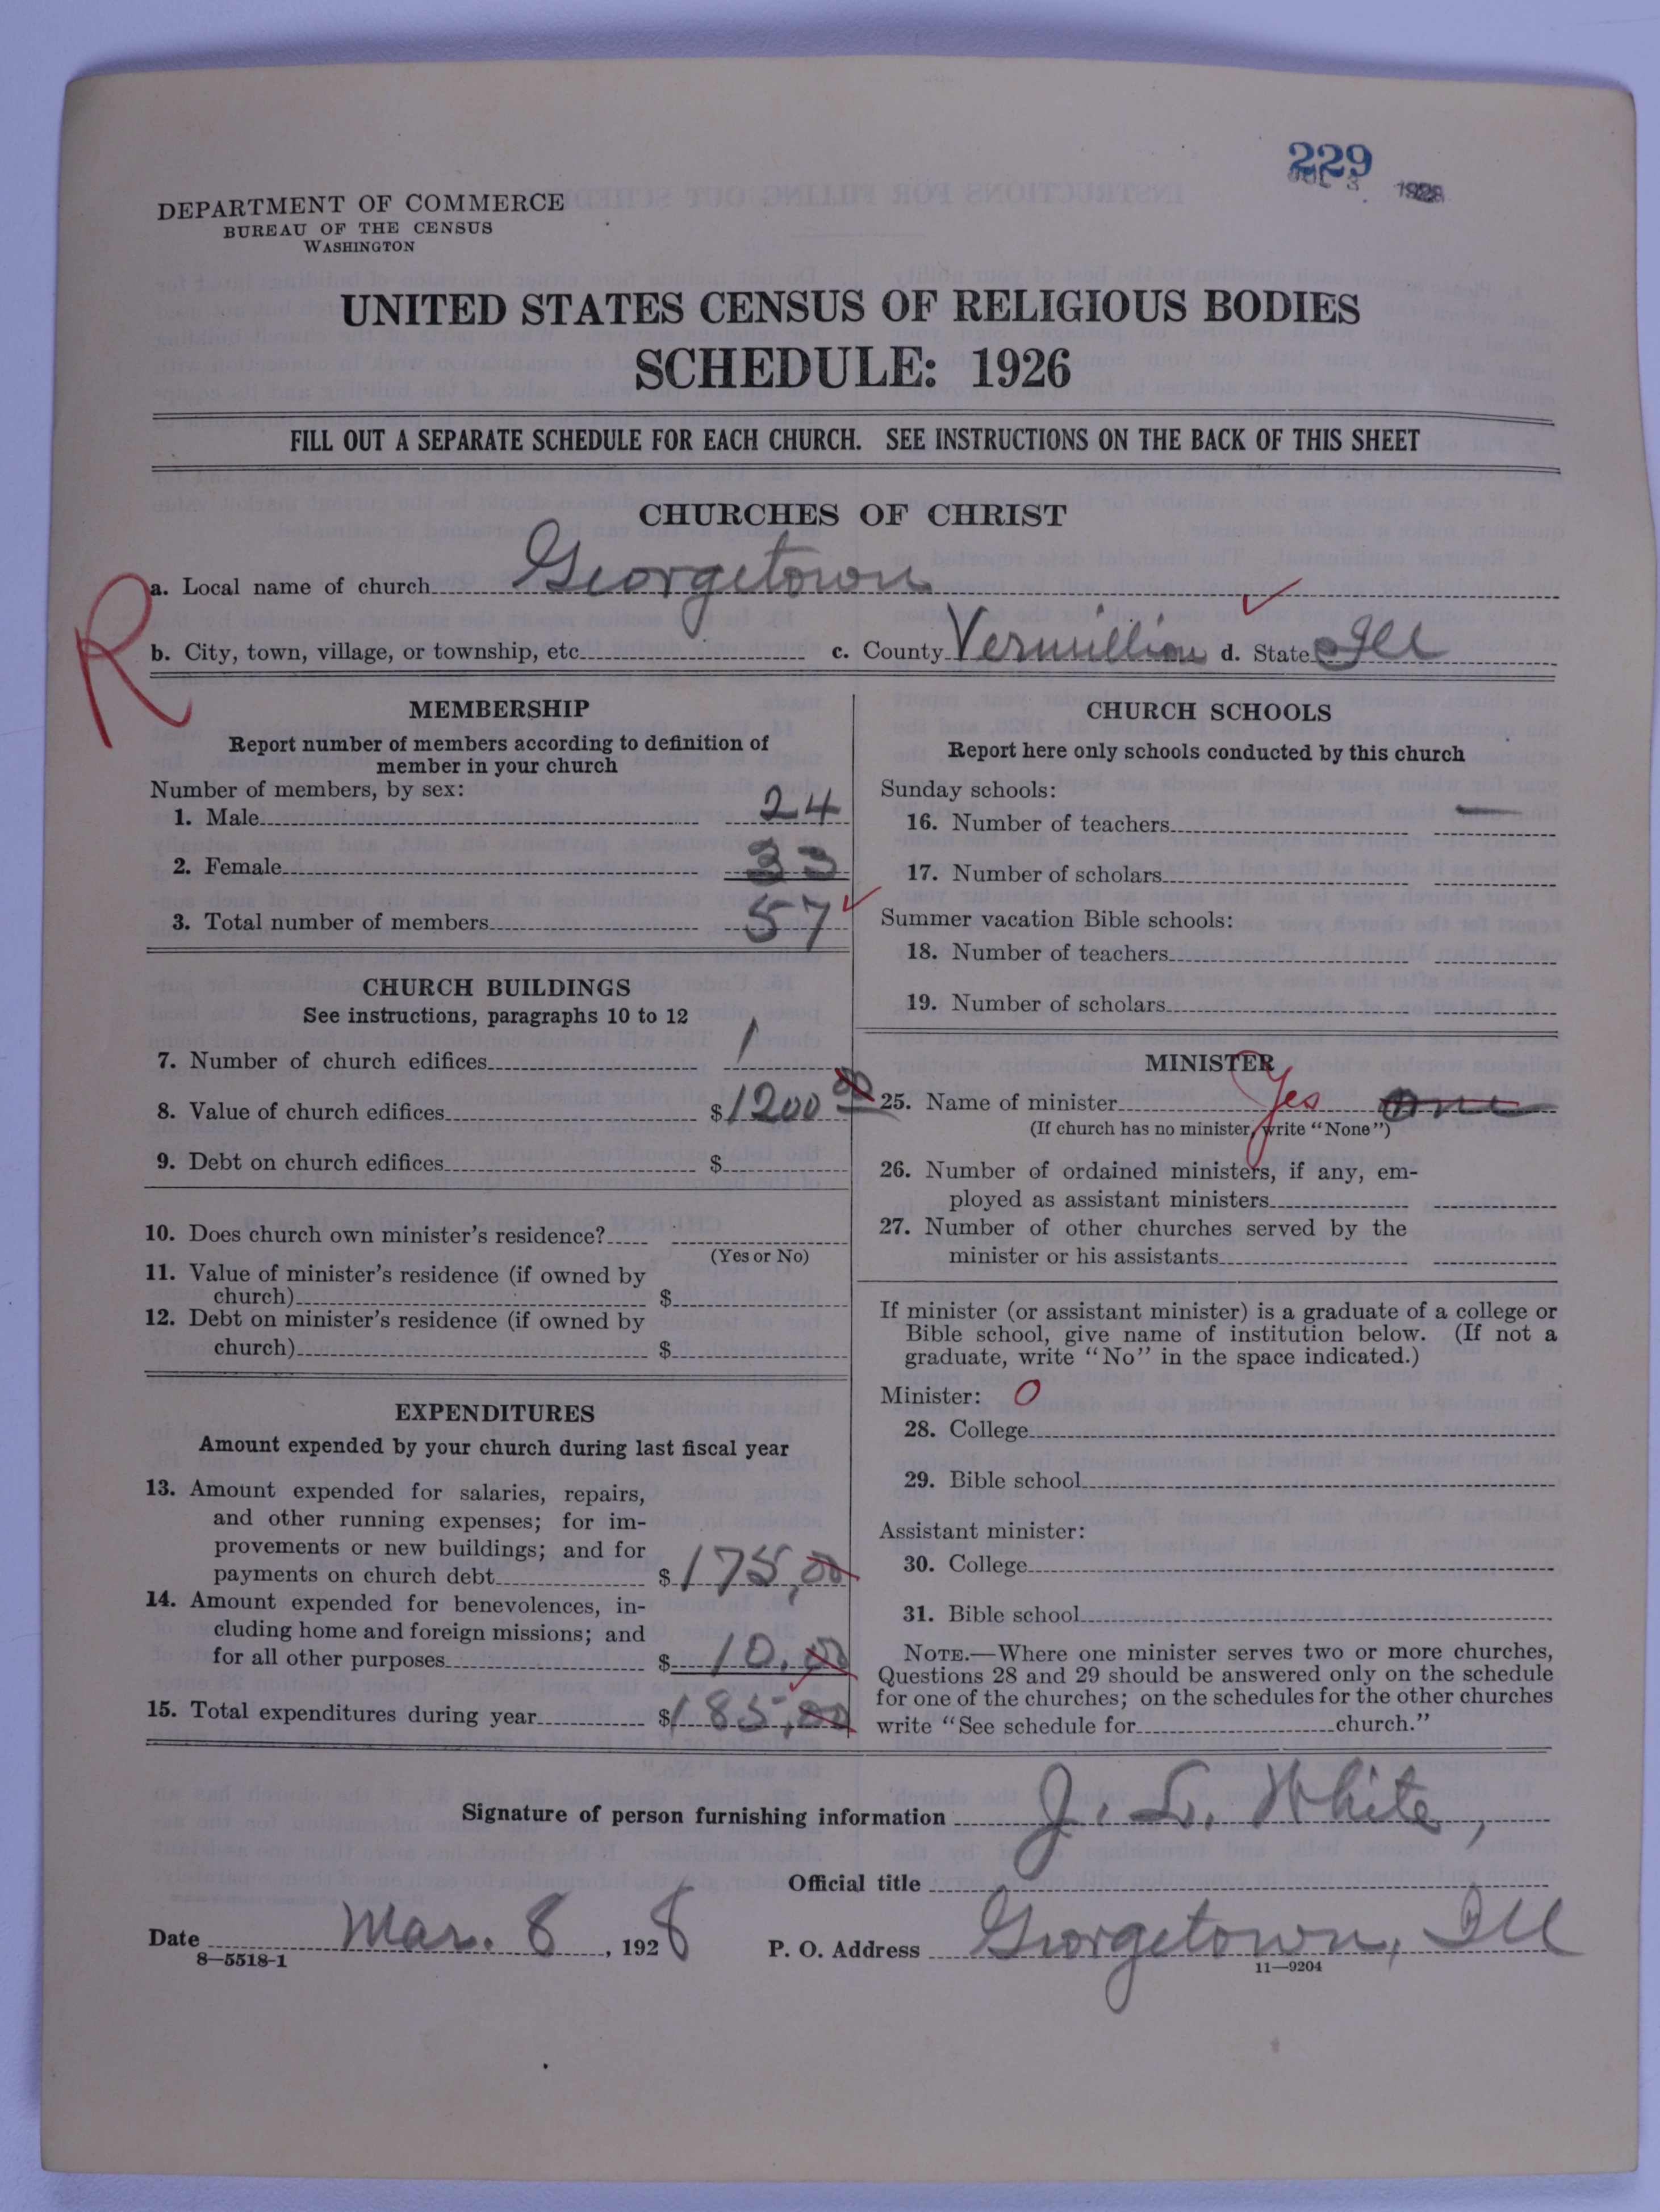 229
1928
DEPARTMENT OF COMMERCE
BUREAU OF THE CENSUS
WASHINGTON
UNITED STATES CENSUS OF RELIGIOUS BODIES
SCHEDULE: 1926
FILL OUT A SEPARATE SCHEDULE FOR EACH CHURCH. SEE INSTRUCTIONS ON THE BACK OF THIS SHEET
CHURCHES OF CHRIST
R
a. Local name of church Georgetown
b. City, town, village, or township, etc. c. County Vermillion d. State Ill
MEMBERSHIP
Report number of members according to definition of
member in your church
Number of members, by sex:
1. Male 24
2. Female 33
3. Total number of members 57
CHURCH BUILDINGS
See instructions, paragraphs 10 to 12
7. Number of church edifices 1
8. Value of church edifices $1200 00
9. Debt on church edifices $
10. Does church own minister's residence?
(Yes or No)
11. Value of minister's residence (if owned by
church) $
12. Debt on minister's residence (if owned by
church) $
EXPENDITURES
Amount expended by your church during last fiscal year
13. Amount expended for salaries, repairs,
and other running expenses; for im-
provements or new buildings; and for
payments on church debt $175,00
14. Amount expended for benevolences, in-
cluding home and foreign missions; and
for all other purposes $10.00
15. Total expenditures during year $185,00
CHURCH SCHOOLS
Report here only schools conducted by this church
Sunday schools:
16. Number of teachers —
17. Number of scholars
Summer vacation Bible schools:
18. Number of teachers
19. Number of scholars
MINISTER
25. Name of minister Yes one
(If church has no minister, write "None")
26. Number of ordained ministers, if any, em-
ployed as assistant ministers
27. Number of other churches served by the
minister or his assistants
If minister (or assistant minister) is a graduate of a college or
Bible school, give name of institution below. (If not a
graduate, write "No" in the space indicated.)
Minister: 0
28. College
29. Bible school
Assistant minister:
30. College
31. Bible school
NOTE.—Where one minister serves two or more churches,
Questions 28 and 29 should be answered only on the schedule
for one of the churches; on the schedules for the other churches
write "See schedule for church."
Signature of person furnishing information J. L. White,
Official title
Date Mar. 8, 1928 P. O. Address Georgetown, Ill
8—5518-1 11—9204